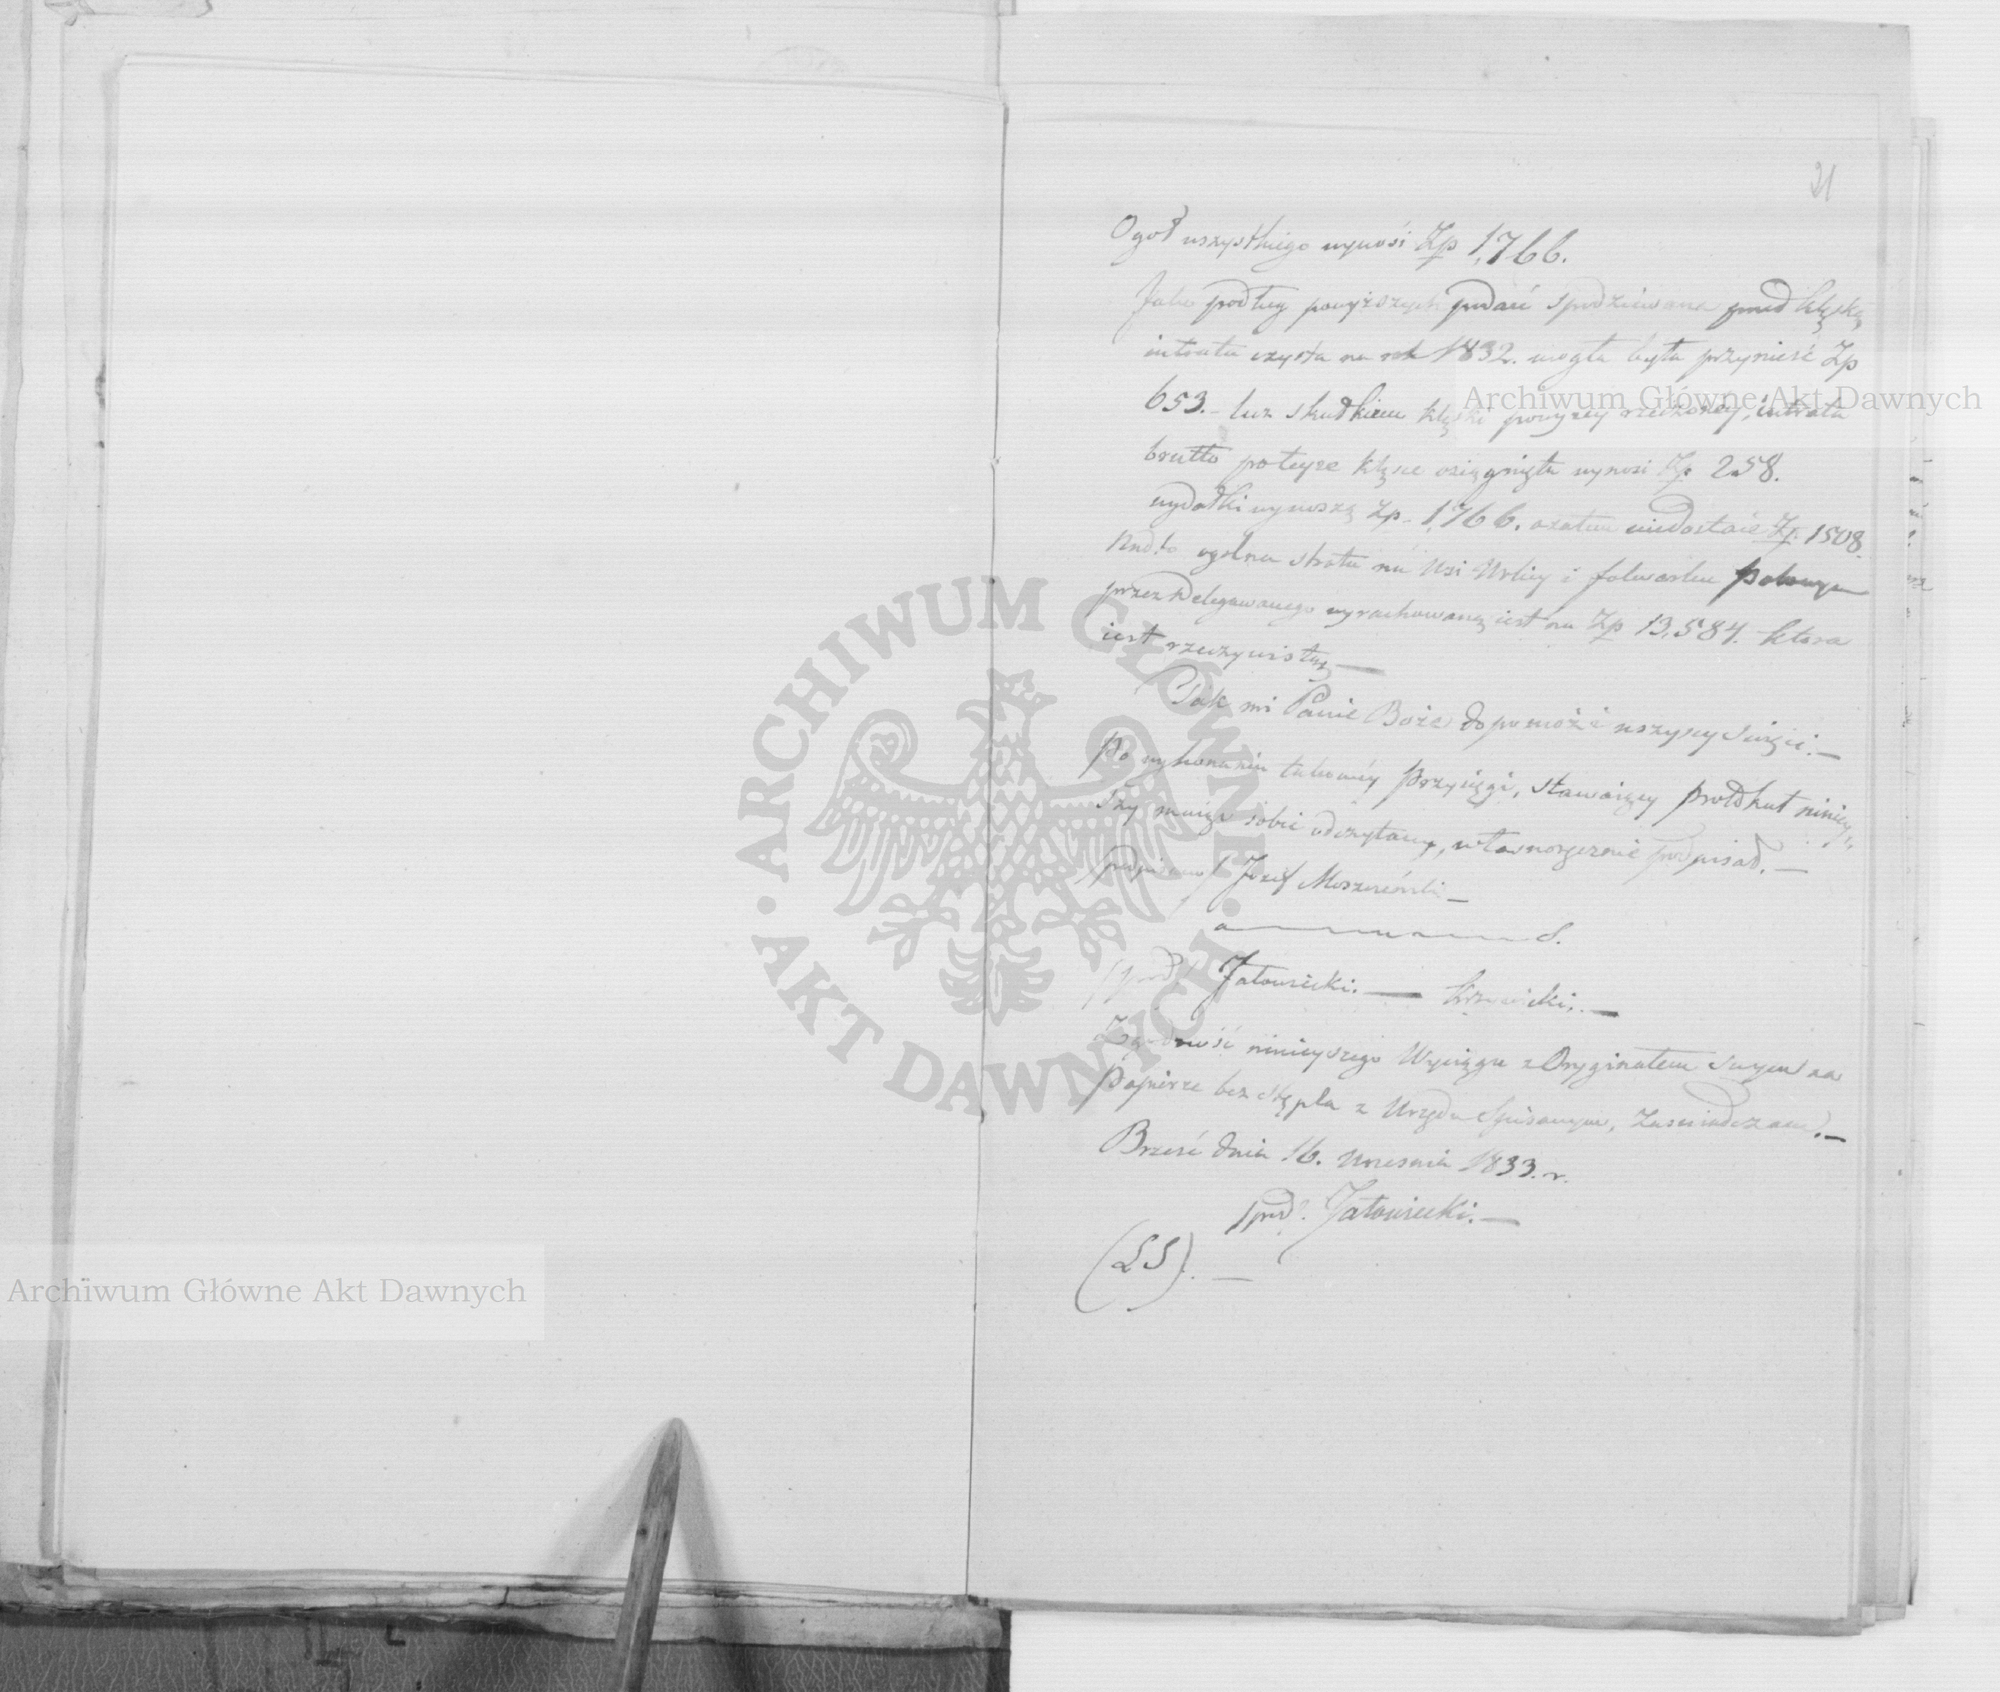 21
Ogoł wszystkiego wynosi Zp 1,766.
Jako podług powyższych podań spodziewana przed klęską
intrata czysta na rok 1832. mogła była przynieść Zp
653.- lecz skutkiem klęski powyzey rzeczoney, intrata
brutto po teyże klęsce osiągnięta wynosi Zp. 258.
wydatki wynoszą Zp. 1,766. azatem niedostaie Zp. 1508.
nadto ogolna strata na Wsi i folwarku
przez Delegowanego wyrachowaną iest na Zp 13,584. ktora
iest rzeczywistą —
Tak mi Panie Boże dopomóż i wszyscy Swięci. —
Po wykonaniu takowéy Przysięgi, stawaiący protokuł niniey-
szy maiąc sobie odczytany, własnoręcznie podpisał. —
podpisano/ Józef Moszczeński —
d.
/podp/ Jałowiecki. — Krzywicki. —
Zgodność ninieyszego Wyciągu z Oryginałem swym na
Papierze bez stępla z Urzędu spisanym, zaswiadczam. —
Brześć dnia 16. Wrzesnia 1833. r.
podp. Jałowiecki. —
(LS). —
Archiwum Główne Akt Dawnych
Archiwum Główne Akt Dawnych
ARCHIWUM GŁÓWNE · AKT DAWNYCH ·